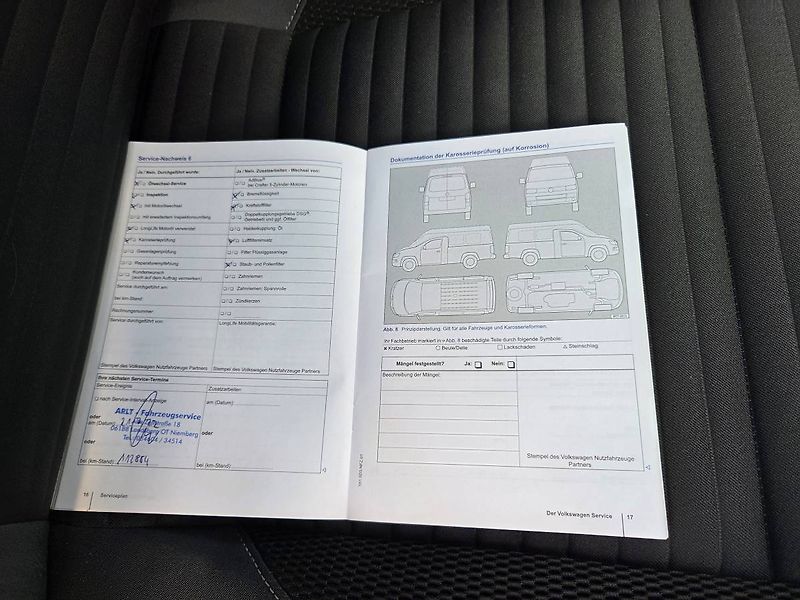 Service-Nachweis 6
Ja / Nein, Durchgeführt wurde:
Ölwechsel-Service
Inspektion
mit Motorölwechsel
mit erweitertem Inspektionsumfang
LongLife Motoröl verwendet
Karosserieprüfung
Gasanlagenprüfung
Reparaturempfehlung
Kundenwunsch
(auch auf dem Auftrag vermerken)
Service durchgeführt am:
bei km-Stand:
Rechnungsnummer
Service durchgeführt von:
Stempel des Volkswagen Nutzfahrzeuge Partners
Ja / Nein, Zusatzarbeiten - Wechsel von:
AdBlue®
bei Crafter 5-Zylinder-Motoren
Bremsflüssigkeit
Kraftstofffilter
Doppelkupplungsgetriebe DSG®:
Getriebeöl und ggf. Ölfilter
Haldexkupplung: Öl
Luftfiltereinsatz
Filter Flüssiggasanlage
Staub- und Pollenfilter
Zahnriemen
Zahnriemen: Spannrolle
Zündkerzen
LongLife Mobilitätsgarantie:
Stempel des Volkswagen Nutzfahrzeuge Partners
Ihre nächsten Service-Termine
Service-Ereignis
nach Service-Intervall-Anzeige
ARLT - Fahrzeugservice
oder
am (Datum):
06188 Landsberg OT Niemberg
oder
bei (km-Stand): 112864
Zusatzarbeiten
am (Datum):
oder
bei (km-Stand):
16 Serviceplan
Dokumentation der Karosserieprüfung (auf Korrosion)
Abb. 8 Prinzipdarstellung. Gilt für alle Fahrzeuge und Karosserieformen.
Ihr Fachbetrieb markiert in ⇒ Abb. 8 beschädigte Teile durch folgende Symbole:
× Kratzer ○ Beule/Delle □ Lackschaden △ Steinschlag
Mängel festgestellt? Ja: Nein:
Beschreibung der Mängel:
Stempel des Volkswagen Nutzfahrzeuge
Partners
Der Volkswagen Service 17